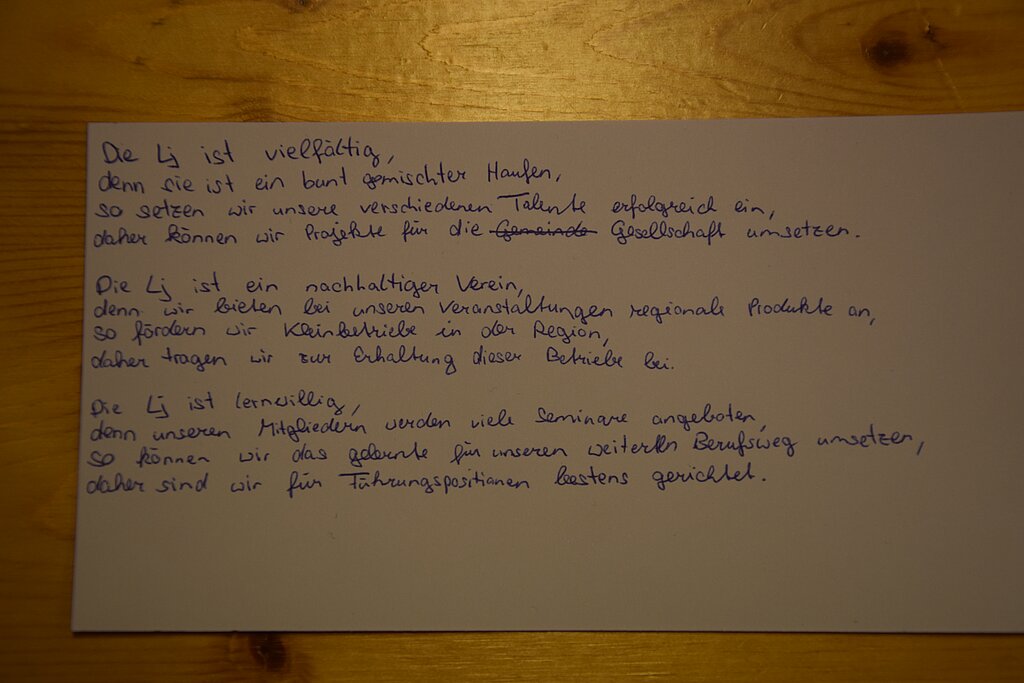 Die Lj ist vielfältig,
denn sie ist ein bunt gemischter Haufen,
so setzen wir unsere verschiedenen Talente erfolgreich ein,
daher können wir Projekte für die Gemeinde Gesellschaft umsetzen.
Die Lj ist ein nachhaltiger Verein,
denn wir bieten bei unseren Veranstaltungen regionale Produkte an,
so fördern wir Kleinbetriebe in der Region,
daher tragen wir zur Erhaltung dieser Betriebe bei.
Die Lj ist lernwillig,
denn unseren Mitgliedern werden viele Seminare angeboten,
so können wir das gelernte für unseren weiteren Berufsweg umsetzen,
daher sind wir für Führungspositionen bestens gerichtet.